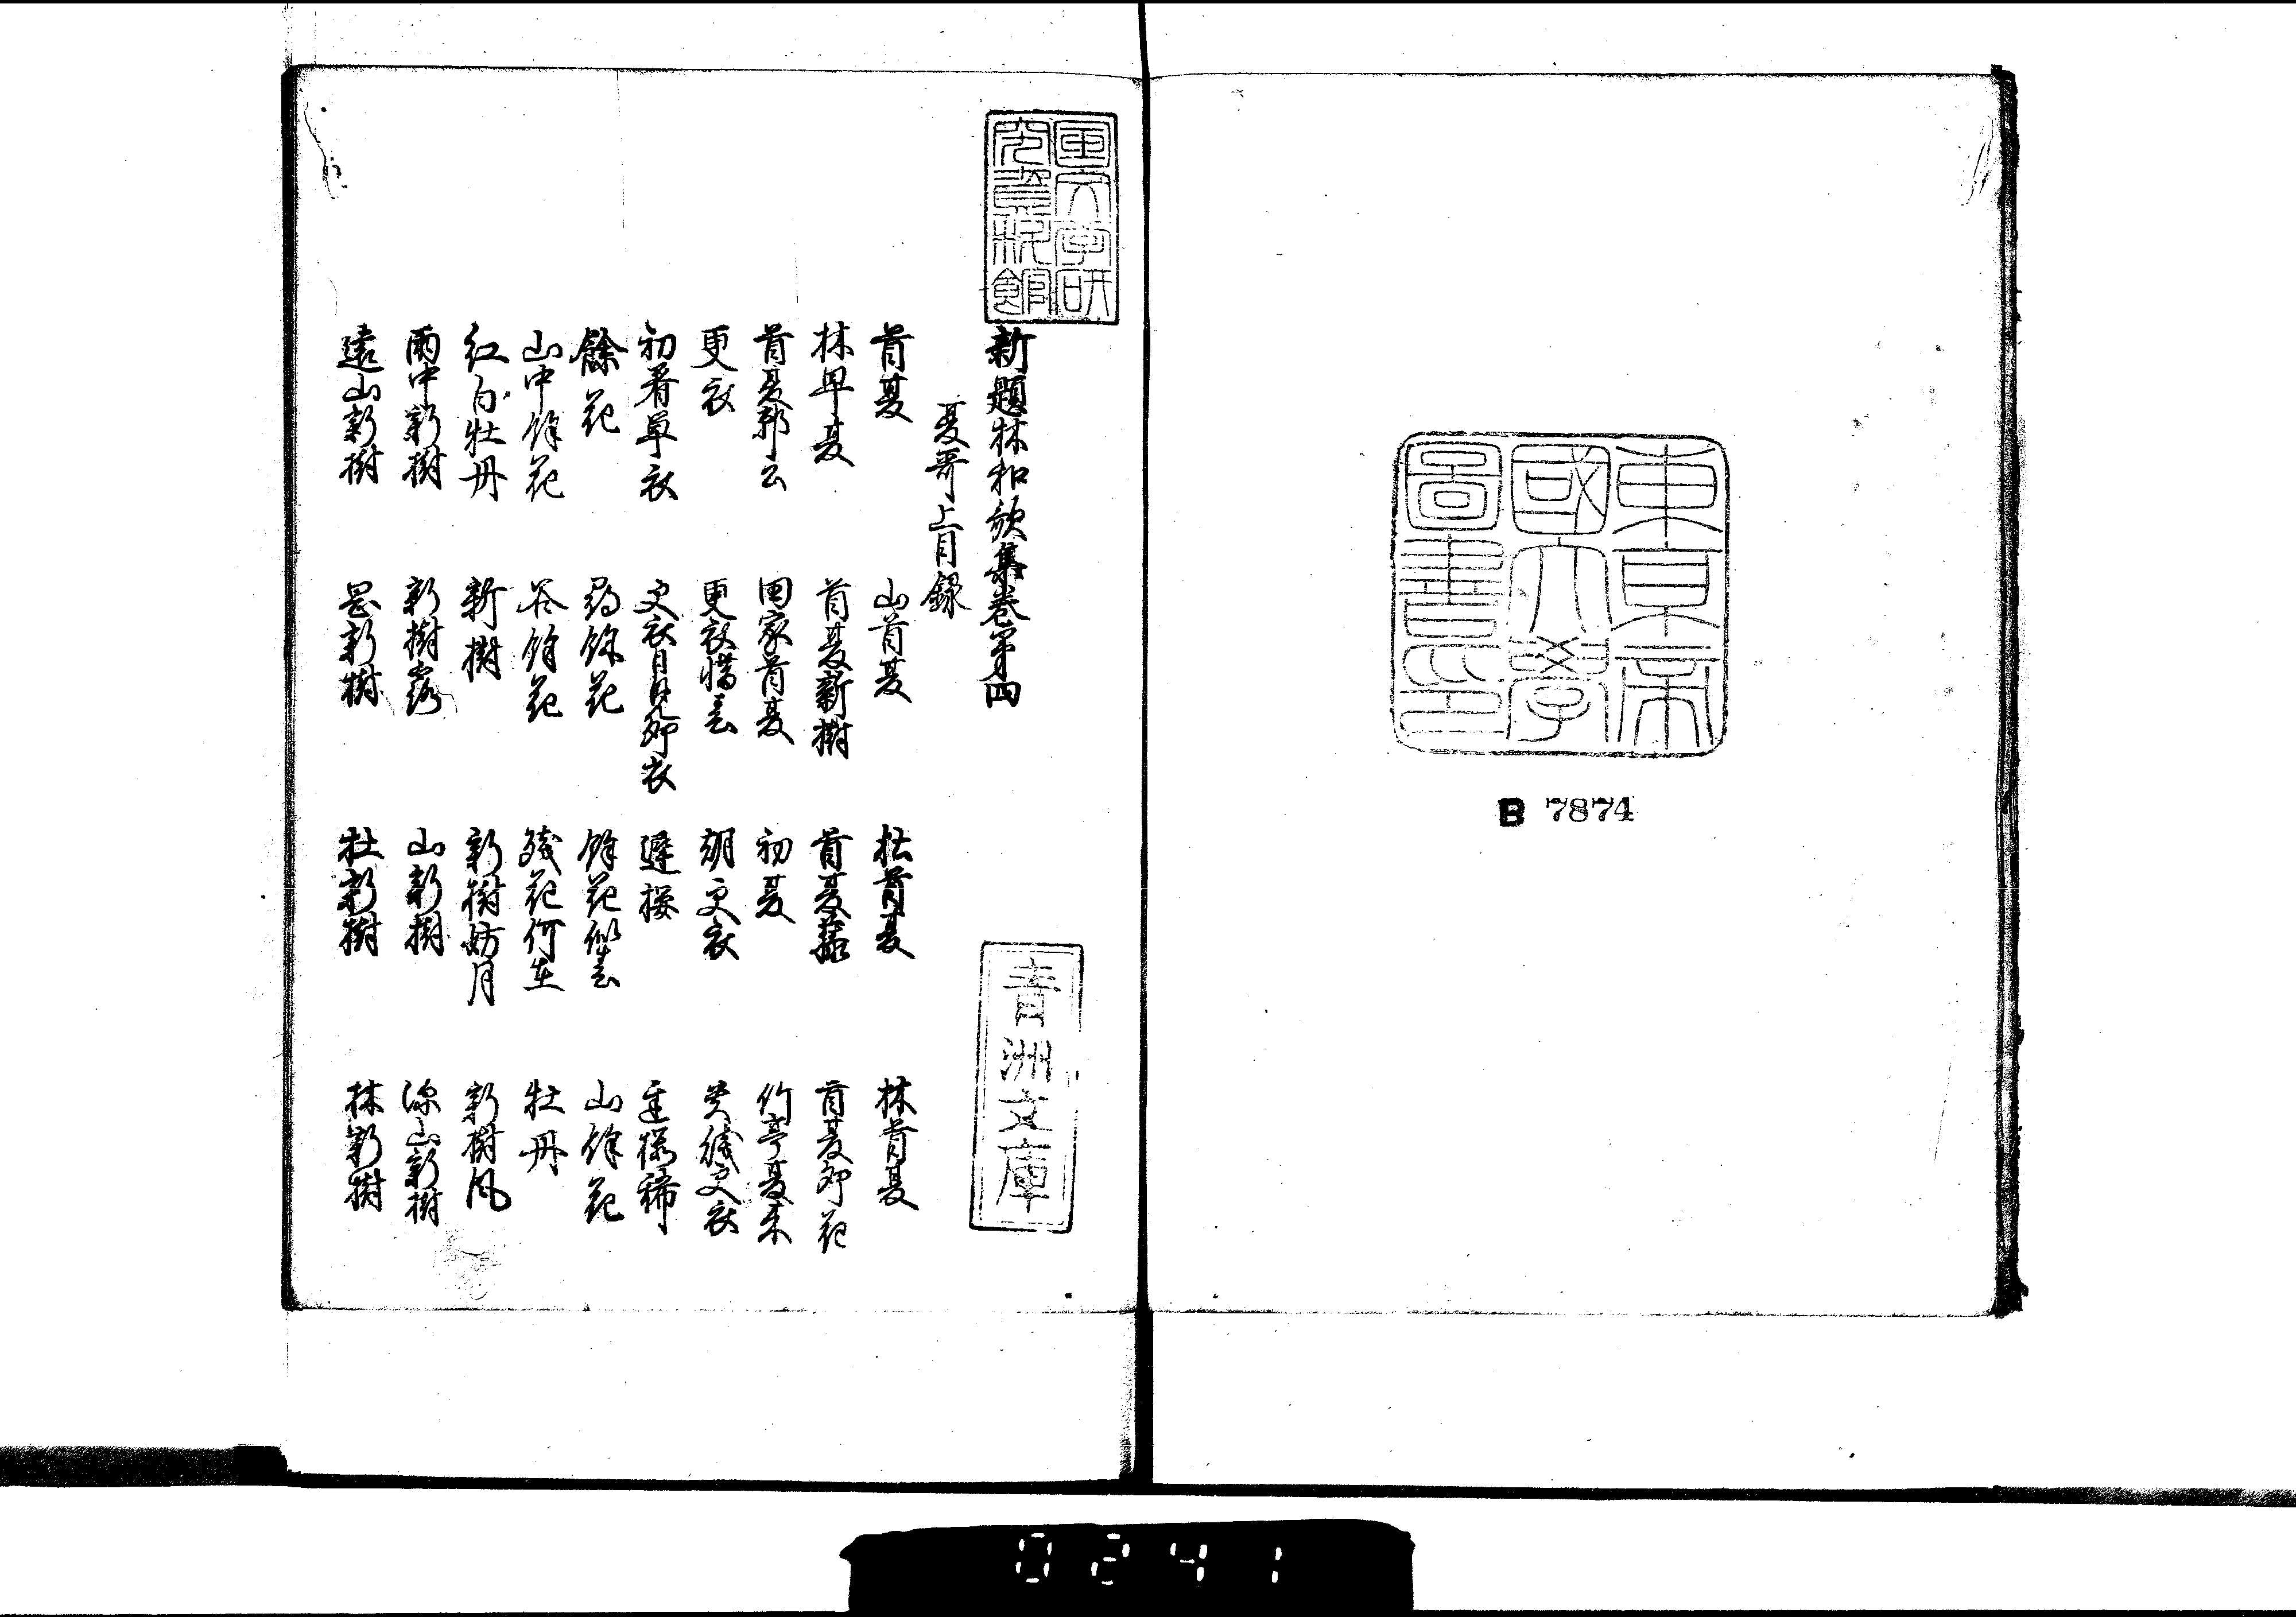 東京帝
國大學
圖書印
B 7874
国文学研
究資料館
新題林和歌集巻第四
夏哥上目録
首夏 山首夏 杜首夏 林首夏
林早夏 首夏新樹 首夏藤 首夏卯花
首夏郭公 田家首夏 初夏 竹亭夏来
更衣 更衣惜春 朝更衣 貴賤更衣
初着単衣 更衣日見卯衣 遅桜 逢桜稀
餘花 尋餘花 餘花似春 山餘花
山中餘花 谷餘花 残花何在 牡丹
紅白牡丹 新樹 新樹妨月 新樹風
雨中新樹 新樹露 山新樹 深山新樹
遠山新樹 岡新樹 杜新樹 林新樹
青洲文庫
0241